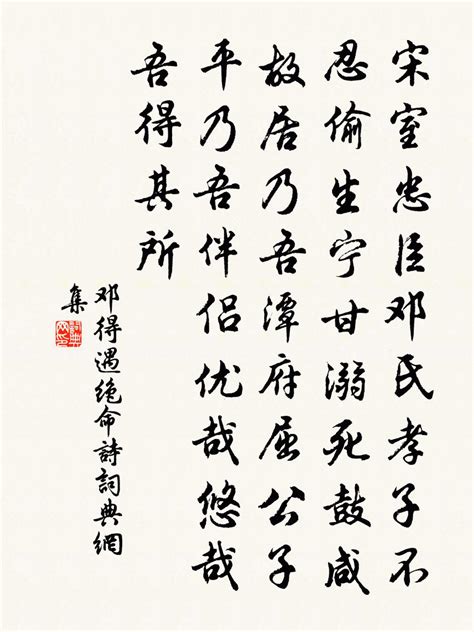 宋室忠臣邓氏孝子不
忍偷生宁甘溺死鼓咸
故居乃吾潭府屈公子
平乃吾伴侣优哉悠哉
吾得其所
邓得遇绝命詩詞典網
集